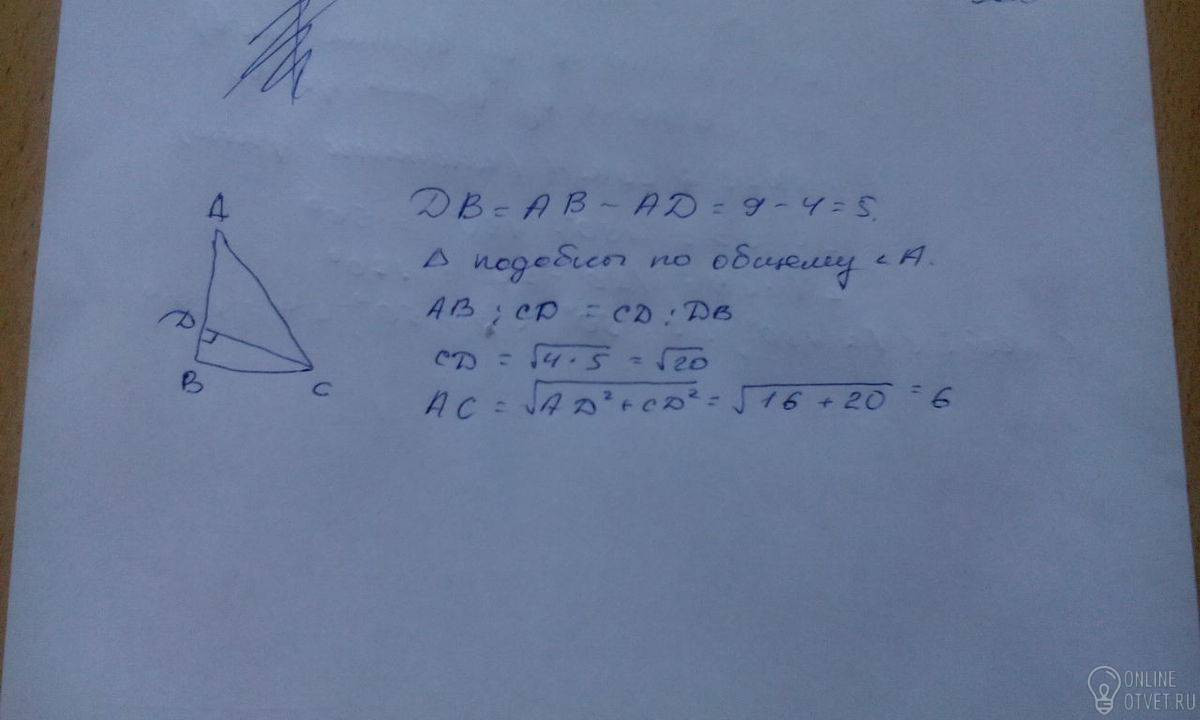 A
D
B
C
DB = AB - AD = 9 - 4 = 5.
Δ подобны по общему ∠A.
AB : CD = CD : DB
CD = √4·5 = √20
AC = √AD²+CD² = √16+20 = 6
ONLINE
OTVET.RU